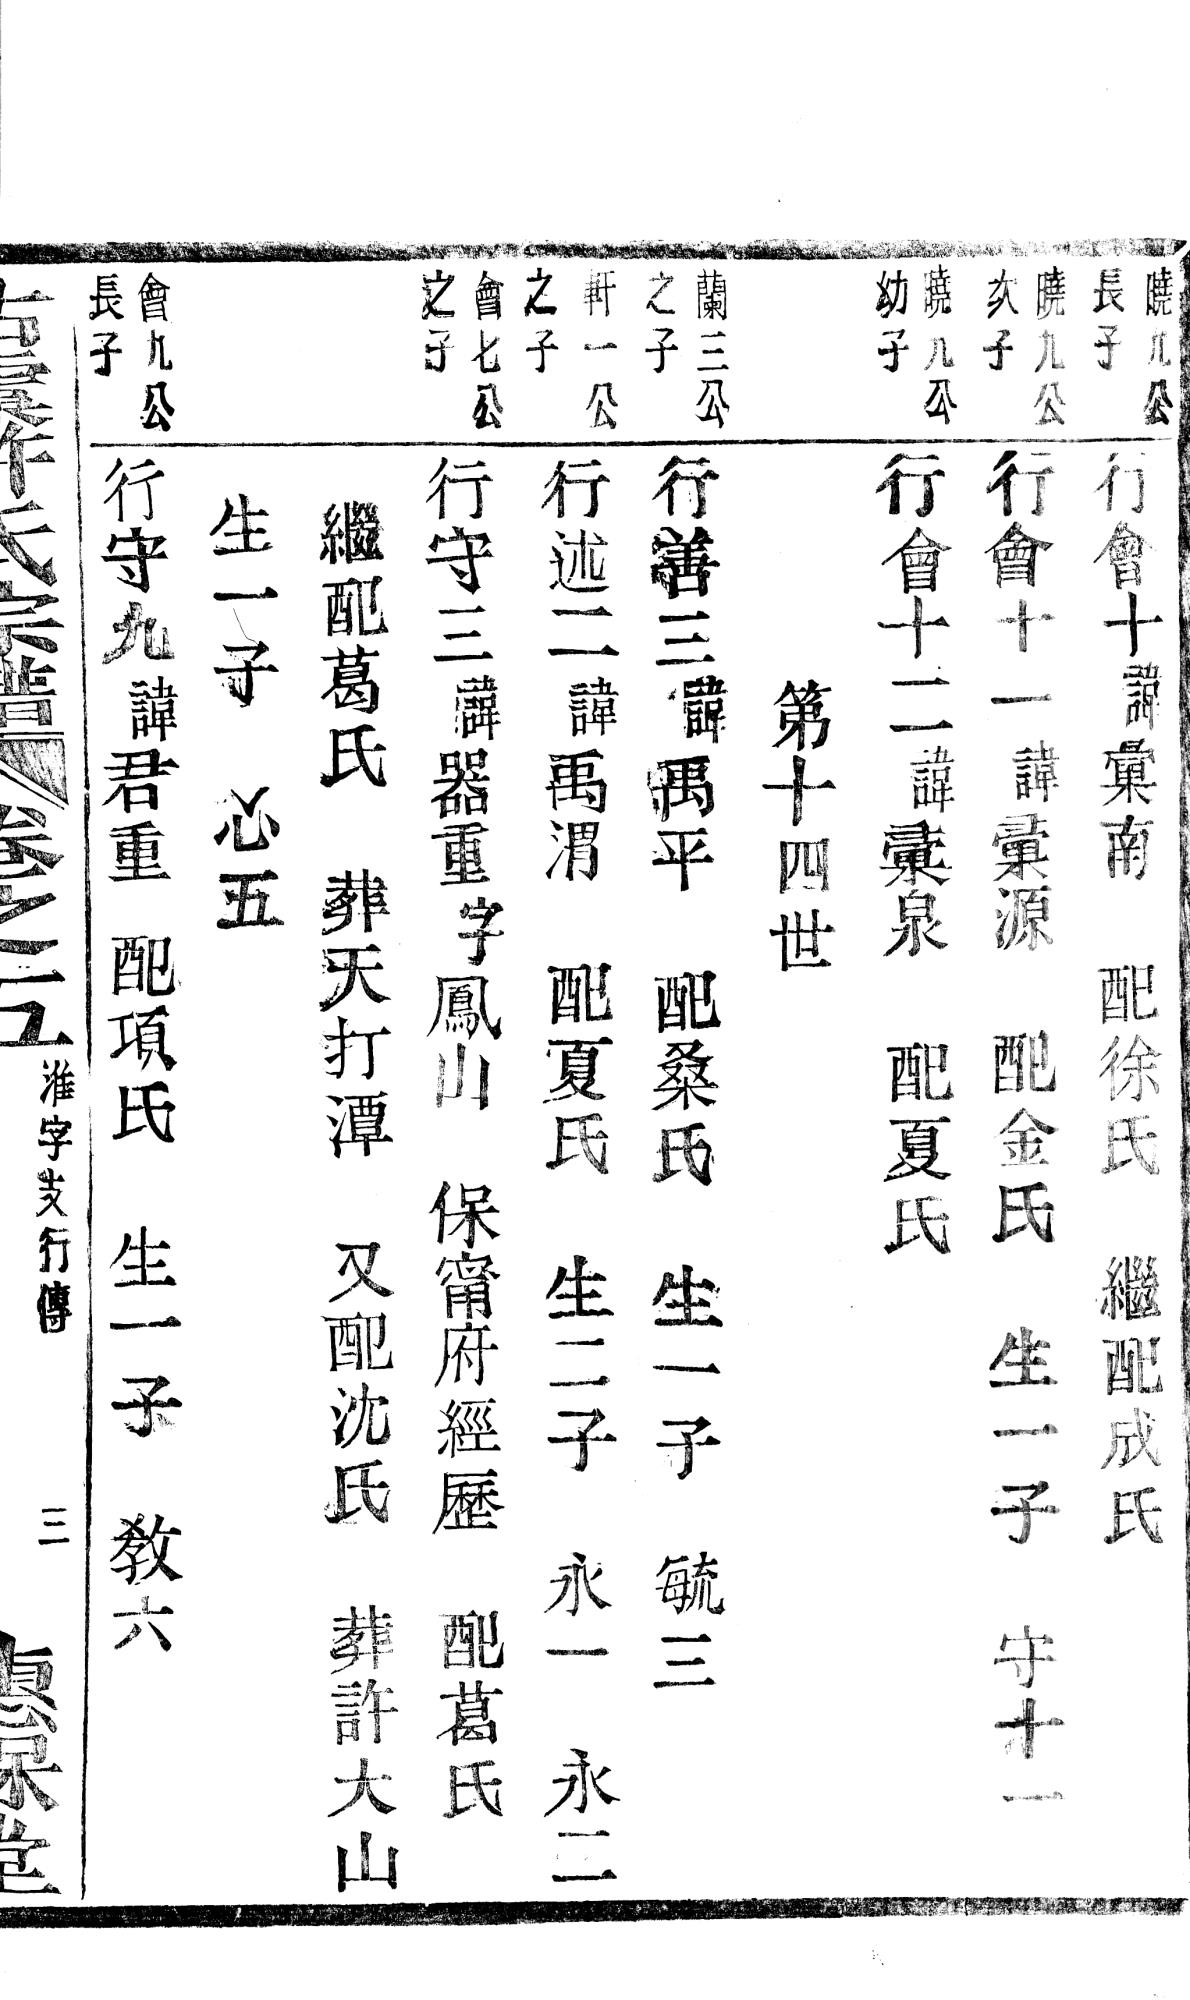 曉九公
長子
行會十諱彙南　配徐氏　繼配成氏
曉九公
次子
行會十一諱彙源　配金氏　生一子　守十一
曉九公
幼子
行會十二諱彙泉　配夏氏
第十四世
蘭三公
之子
行善三諱禹平　配桑氏　生一子　毓三
軒一公
之子
行述二諱禹渭　配夏氏　生二子　永一　永二
會七公
之子
行守三諱器重字鳳山　保甯府經歷　配葛氏
繼配葛氏　葬天打潭　又配沈氏　葬許大山
生一子　心五
會九公
長子
行守九諱君重　配項氏　生一子　敎六
氏宗譜　卷之五　淮字支行傳　三